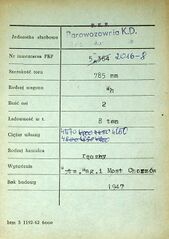 P.K.P.
Jednostka służbowa Parowozownia K.D.
Nr inwentarza PKP 5.364 2016-8
Szerokość toru 785 mm
Rodzaj wagonu Wh
Ilość osi 2
Ładowność w t. 8 ton
Ciężar własny 4570 4150
Rodzaj hamulca ręczny
Wytwórnia Most Chorzów
Rok budowy 1947